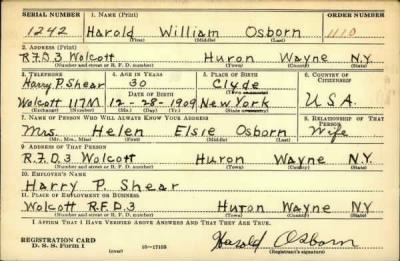 SERIAL NUMBER 1. NAME (Print) ORDER NUMBER
1242 Harold William Osborn 1110
(First) (Middle) (Last)
2. ADDRESS (Print)
R.F.D. 3 Wolcott Huron Wayne N.Y.
(Number and street or R. F. D. number) (Town) (County) (State)
3. TELEPHONE 4. AGE IN YEARS 5. PLACE OF BIRTH 6. COUNTRY OF CITIZENSHIP
Harry P. Shear 30 Clyde
DATE OF BIRTH (Town or county)
Wolcott 117M 12-28-1909 New York U.S.A.
(Exchange) (Number) (Mo.) (Day) (Yr.) (State or country)
7. NAME OF PERSON WHO WILL ALWAYS KNOW YOUR ADDRESS 8. RELATIONSHIP OF THAT PERSON
Mrs. Helen Elsie Osborn Wife
(Mr., Mrs., Miss) (First) (Middle) (Last)
9. ADDRESS OF THAT PERSON
R.F.D. 3 Wolcott Huron Wayne N.Y.
(Number and street or R. F. D. number) (Town) (County) (State)
10. EMPLOYER'S NAME
Harry P. Shear
11. PLACE OF EMPLOYMENT OR BUSINESS
Wolcott R.F.D. 3 Huron Wayne NY
(Number and street or R. F. D. number) (Town) (County) (State)
I AFFIRM THAT I HAVE VERIFIED ABOVE ANSWERS AND THAT THEY ARE TRUE.
REGISTRATION CARD
D. S. S. Form 1 (over) 16-17105 Harold Osborn
(Registrant's signature)